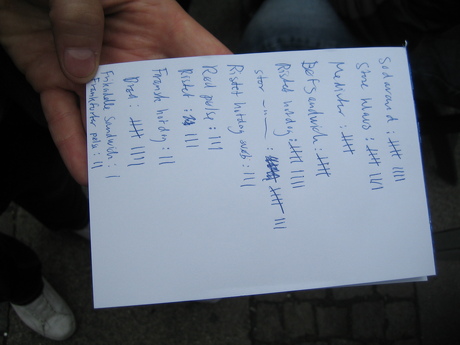 Sodavand : 卌 ||||
Store Klaus : 卌 ||||
Medister : 卌
Bøfsandwich : 卌
Ristet hotdog : 卌 ||||
stor -"- : 卌 |||
Ristet hotdog :|||
Rød pølse : |||
Ristet : |||
Fransk hotdog : ||
Brød : 卌 ||||
Frikadelle Sandwich : |
Frankfurter pølse : ||